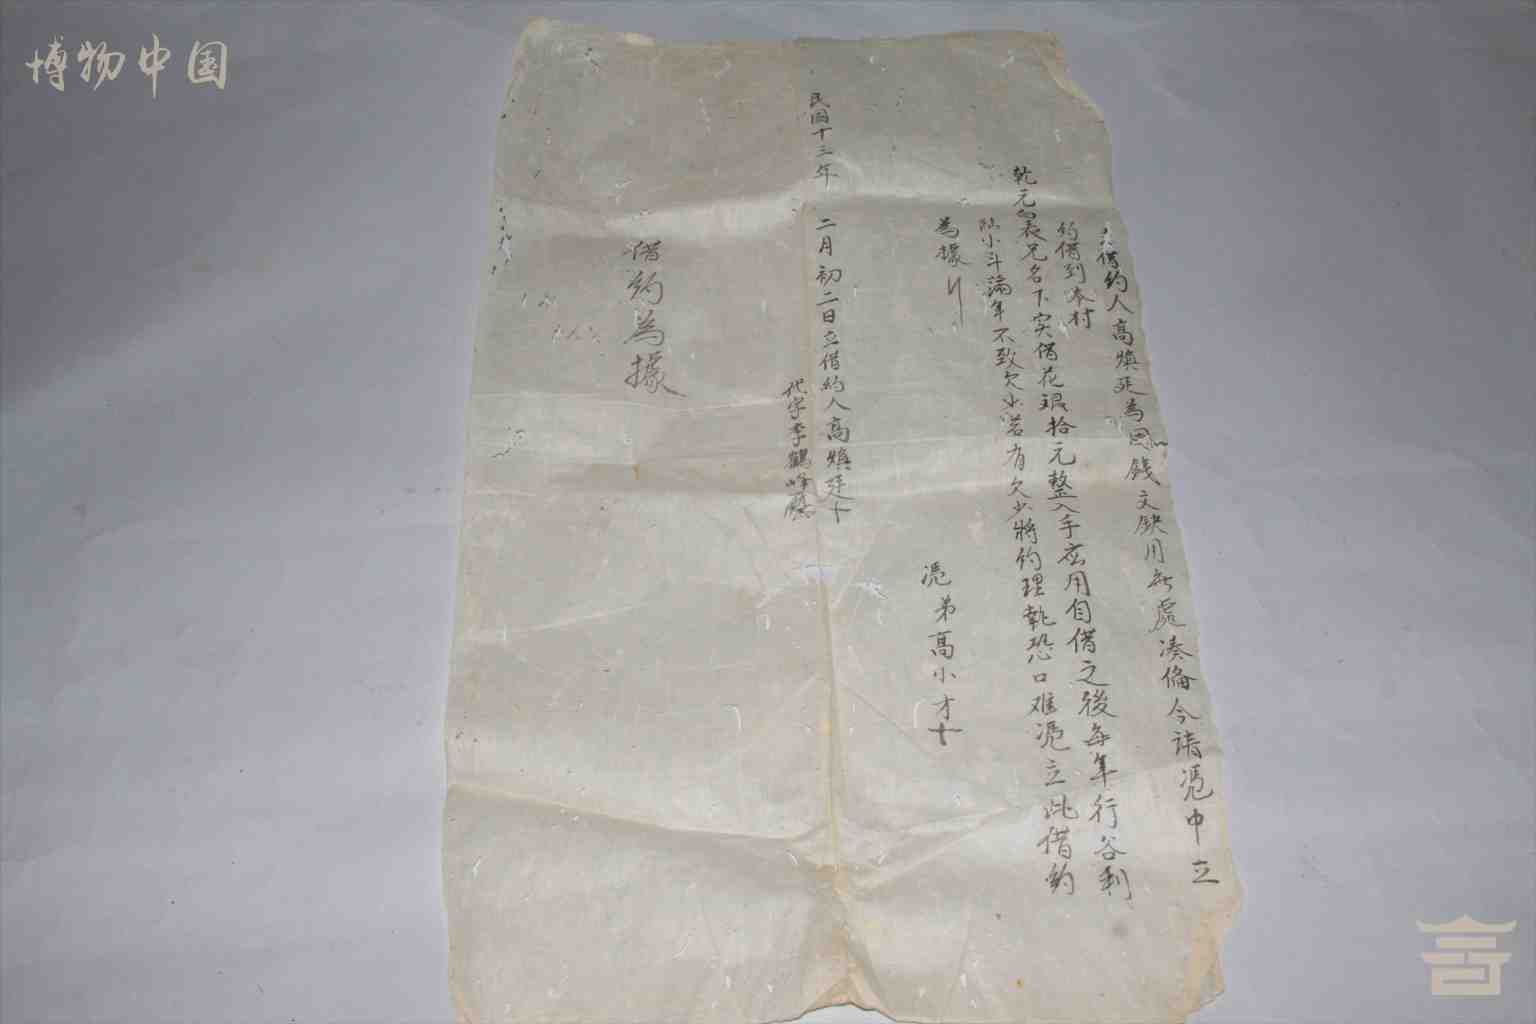 博物中国
立借約人高煥廷為因錢文缺用無處湊備今請憑中立
約借到本村
乾元表兄名下实借花銀拾元整入手应用自借之後每年行谷利
小斗滿年不致欠少若有欠少將約理執恐口难憑立此借約
為據
憑弟高小才十
民國十三年 二月初二日立借約人高煥廷十
代字李鶴峰
借約為據